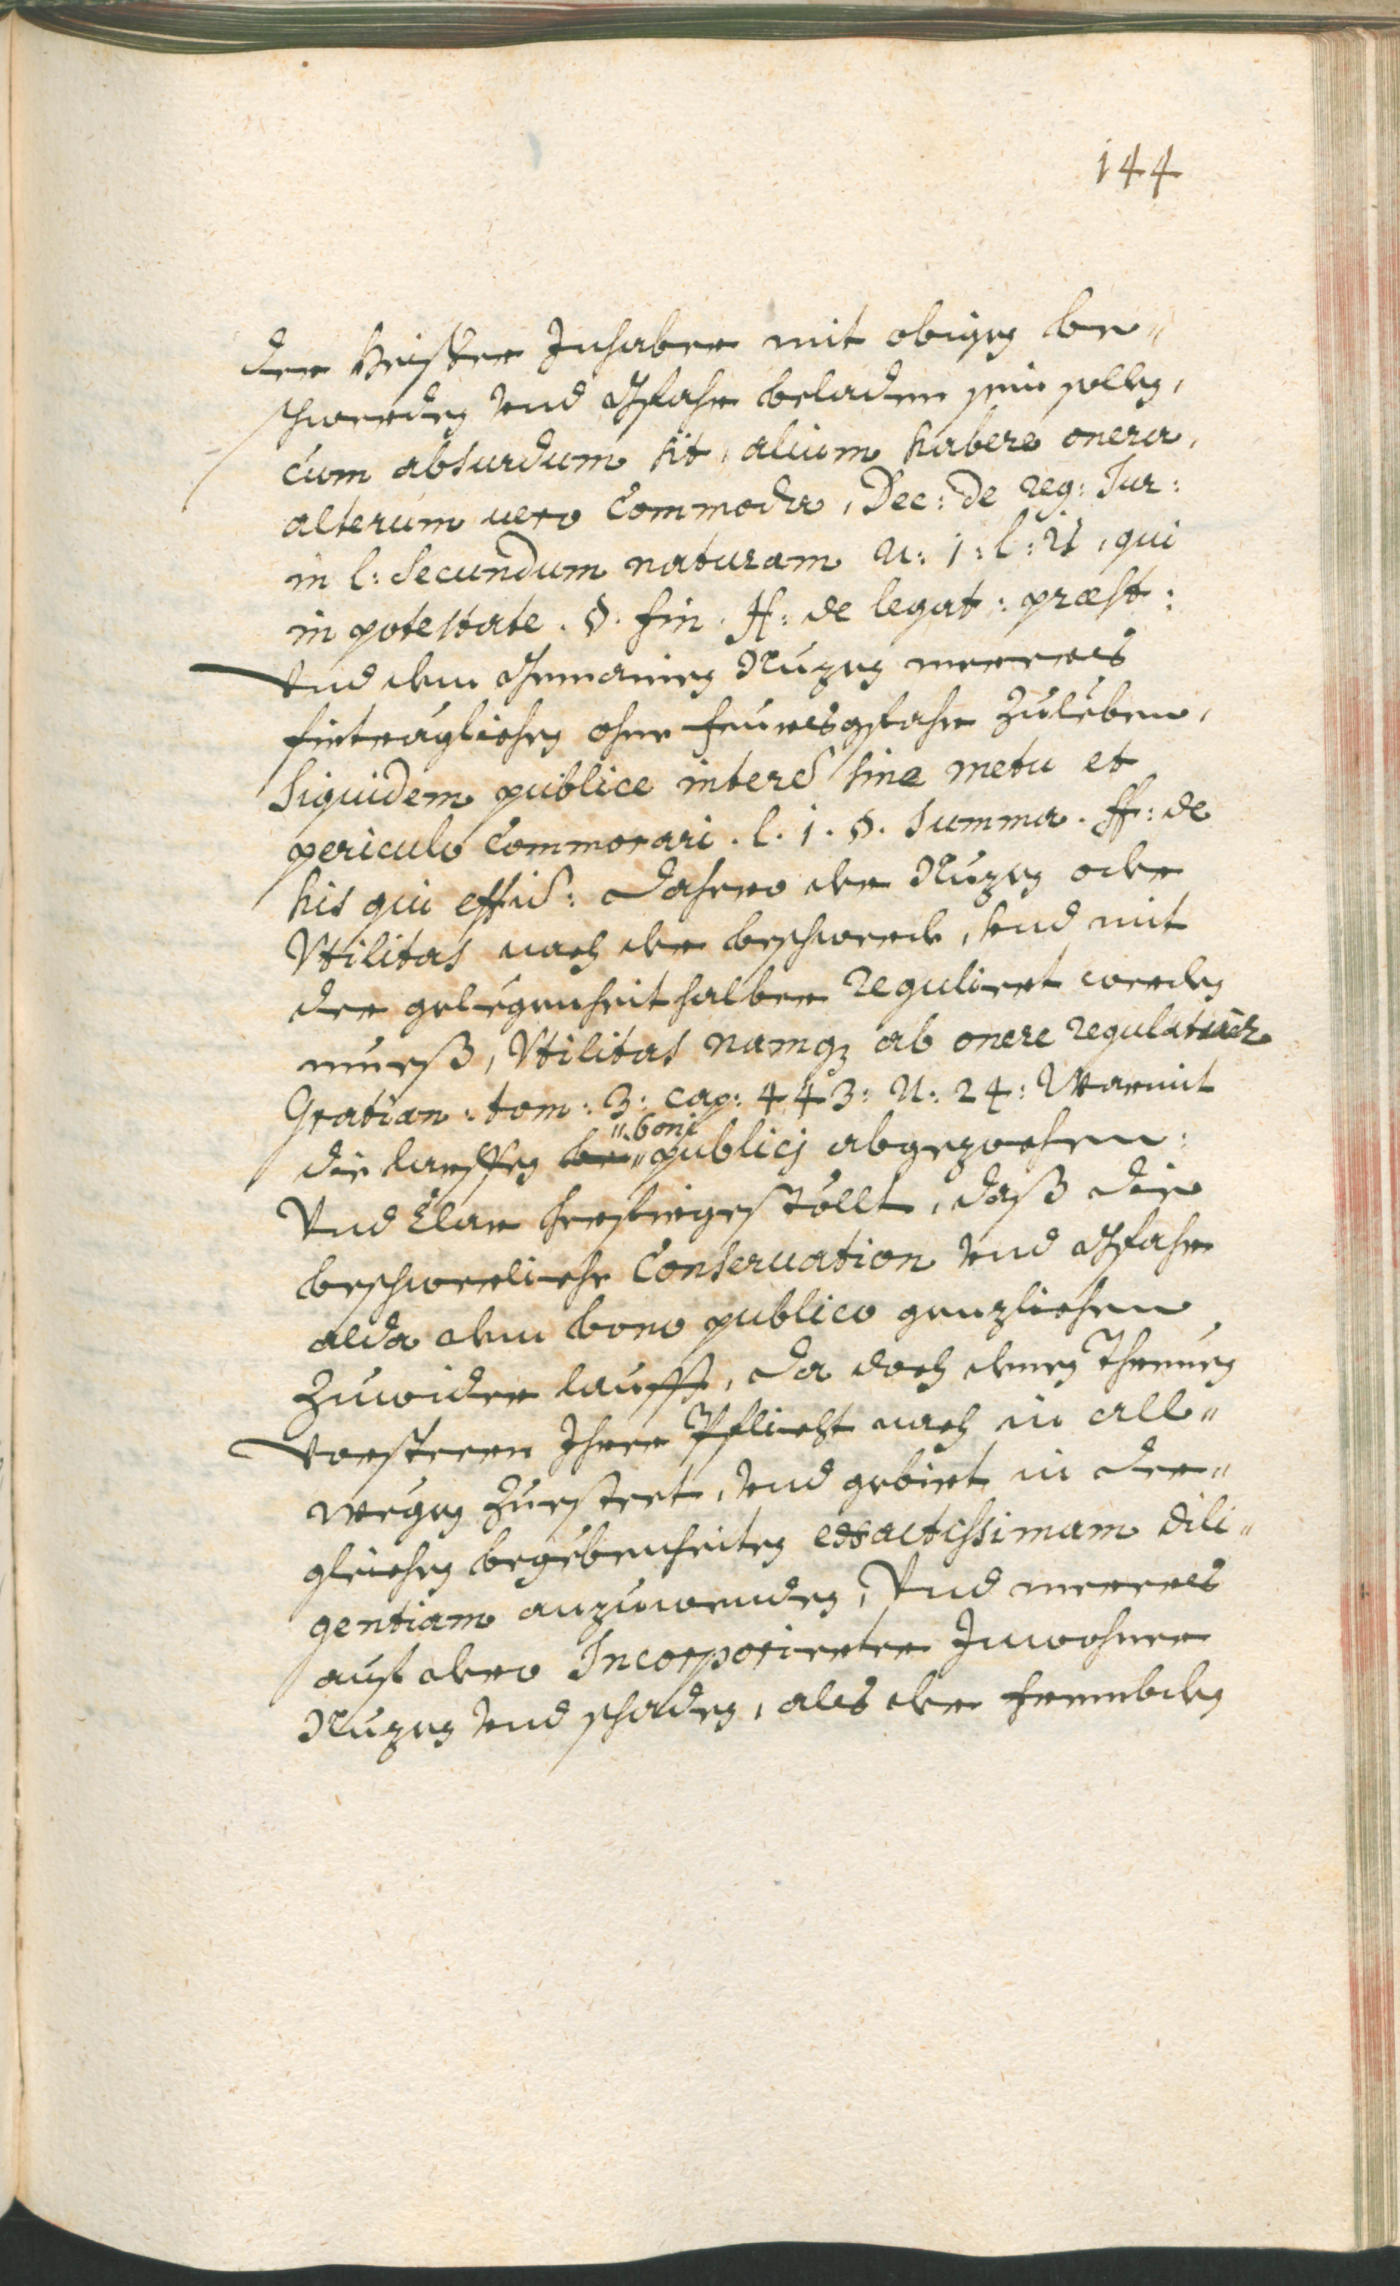 144
der Heiser Inhaber mit obigen be„
schwerden vnd Gfahr beladen sein sollen,
cum absurdum sit, alium habere onera,
alterum uero Commoda, Dec: de reg: Jur:
in l: secundum naturam n: 1: l: 21, qui
in potestate. §. fin. ff: de legat: præst:
Vnd dem Gemainen Nuzen merers
fürträglichen ohne feursgfahr zuleben,
Siquidem publice interest sine metu et
periculo Commorari. l. 1. §. Summa. ff: de
his qui effud: dahero der Nuzen oder
Vtilitas nach der beschwerde, vnd mit
der gelegenheit halber reguliert werden
muess, Vtilitas namq; ab onere regulatur
Gratian: tom: 3: cap: 443: n: 24: Warmit
„boni
die larffen be„ publicj abgezochen:
Vnd Clar herfürgestöllt, daß die
beschwerliche Conseruation vnd Gfahr
alda dem bono publico genzlichen
zuwider laufft, da doch denen
Vorsteern Ihrer Pflicht nach in all„
wegen zuesteet, vnd gebiert in der„
gleichen begebenheiten exactissimam dili„
gentiam anzuwenden, Vnd merers
auf dero Incorporierter Inwohner
Nuzen vnd schaden, als der frembden